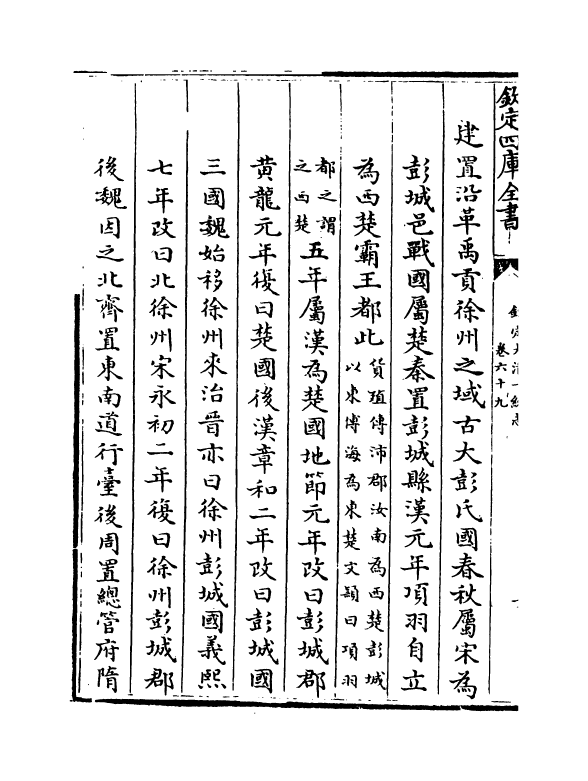 欽定四庫全書
欽定大清一統志
卷六十九
建置沿革禹貢徐州之域古大彭氏國春秋屬宋為
彭城邑戰國屬楚秦置彭城縣漢元年項羽自立
為西楚霸王都此貨殖傳沛郡汝南為西楚彭城
以東傅海為東楚文穎曰項羽
都之謂
之西楚五年屬漢為楚國地節元年改曰彭城郡
黃龍元年復曰楚國後漢章和二年改曰彭城國
三國魏始移徐州來治晉亦曰徐州彭城國義熙
七年改曰北徐州宋永初二年復曰徐州彭城郡
後魏因之北齊置東南道行臺後周置總管府隋